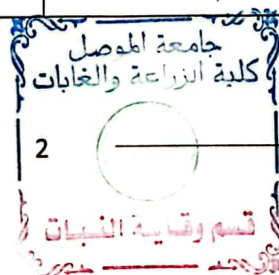 جامعة الموصل
كلية الزراعة والغابات
2
قسم وقاية النبات